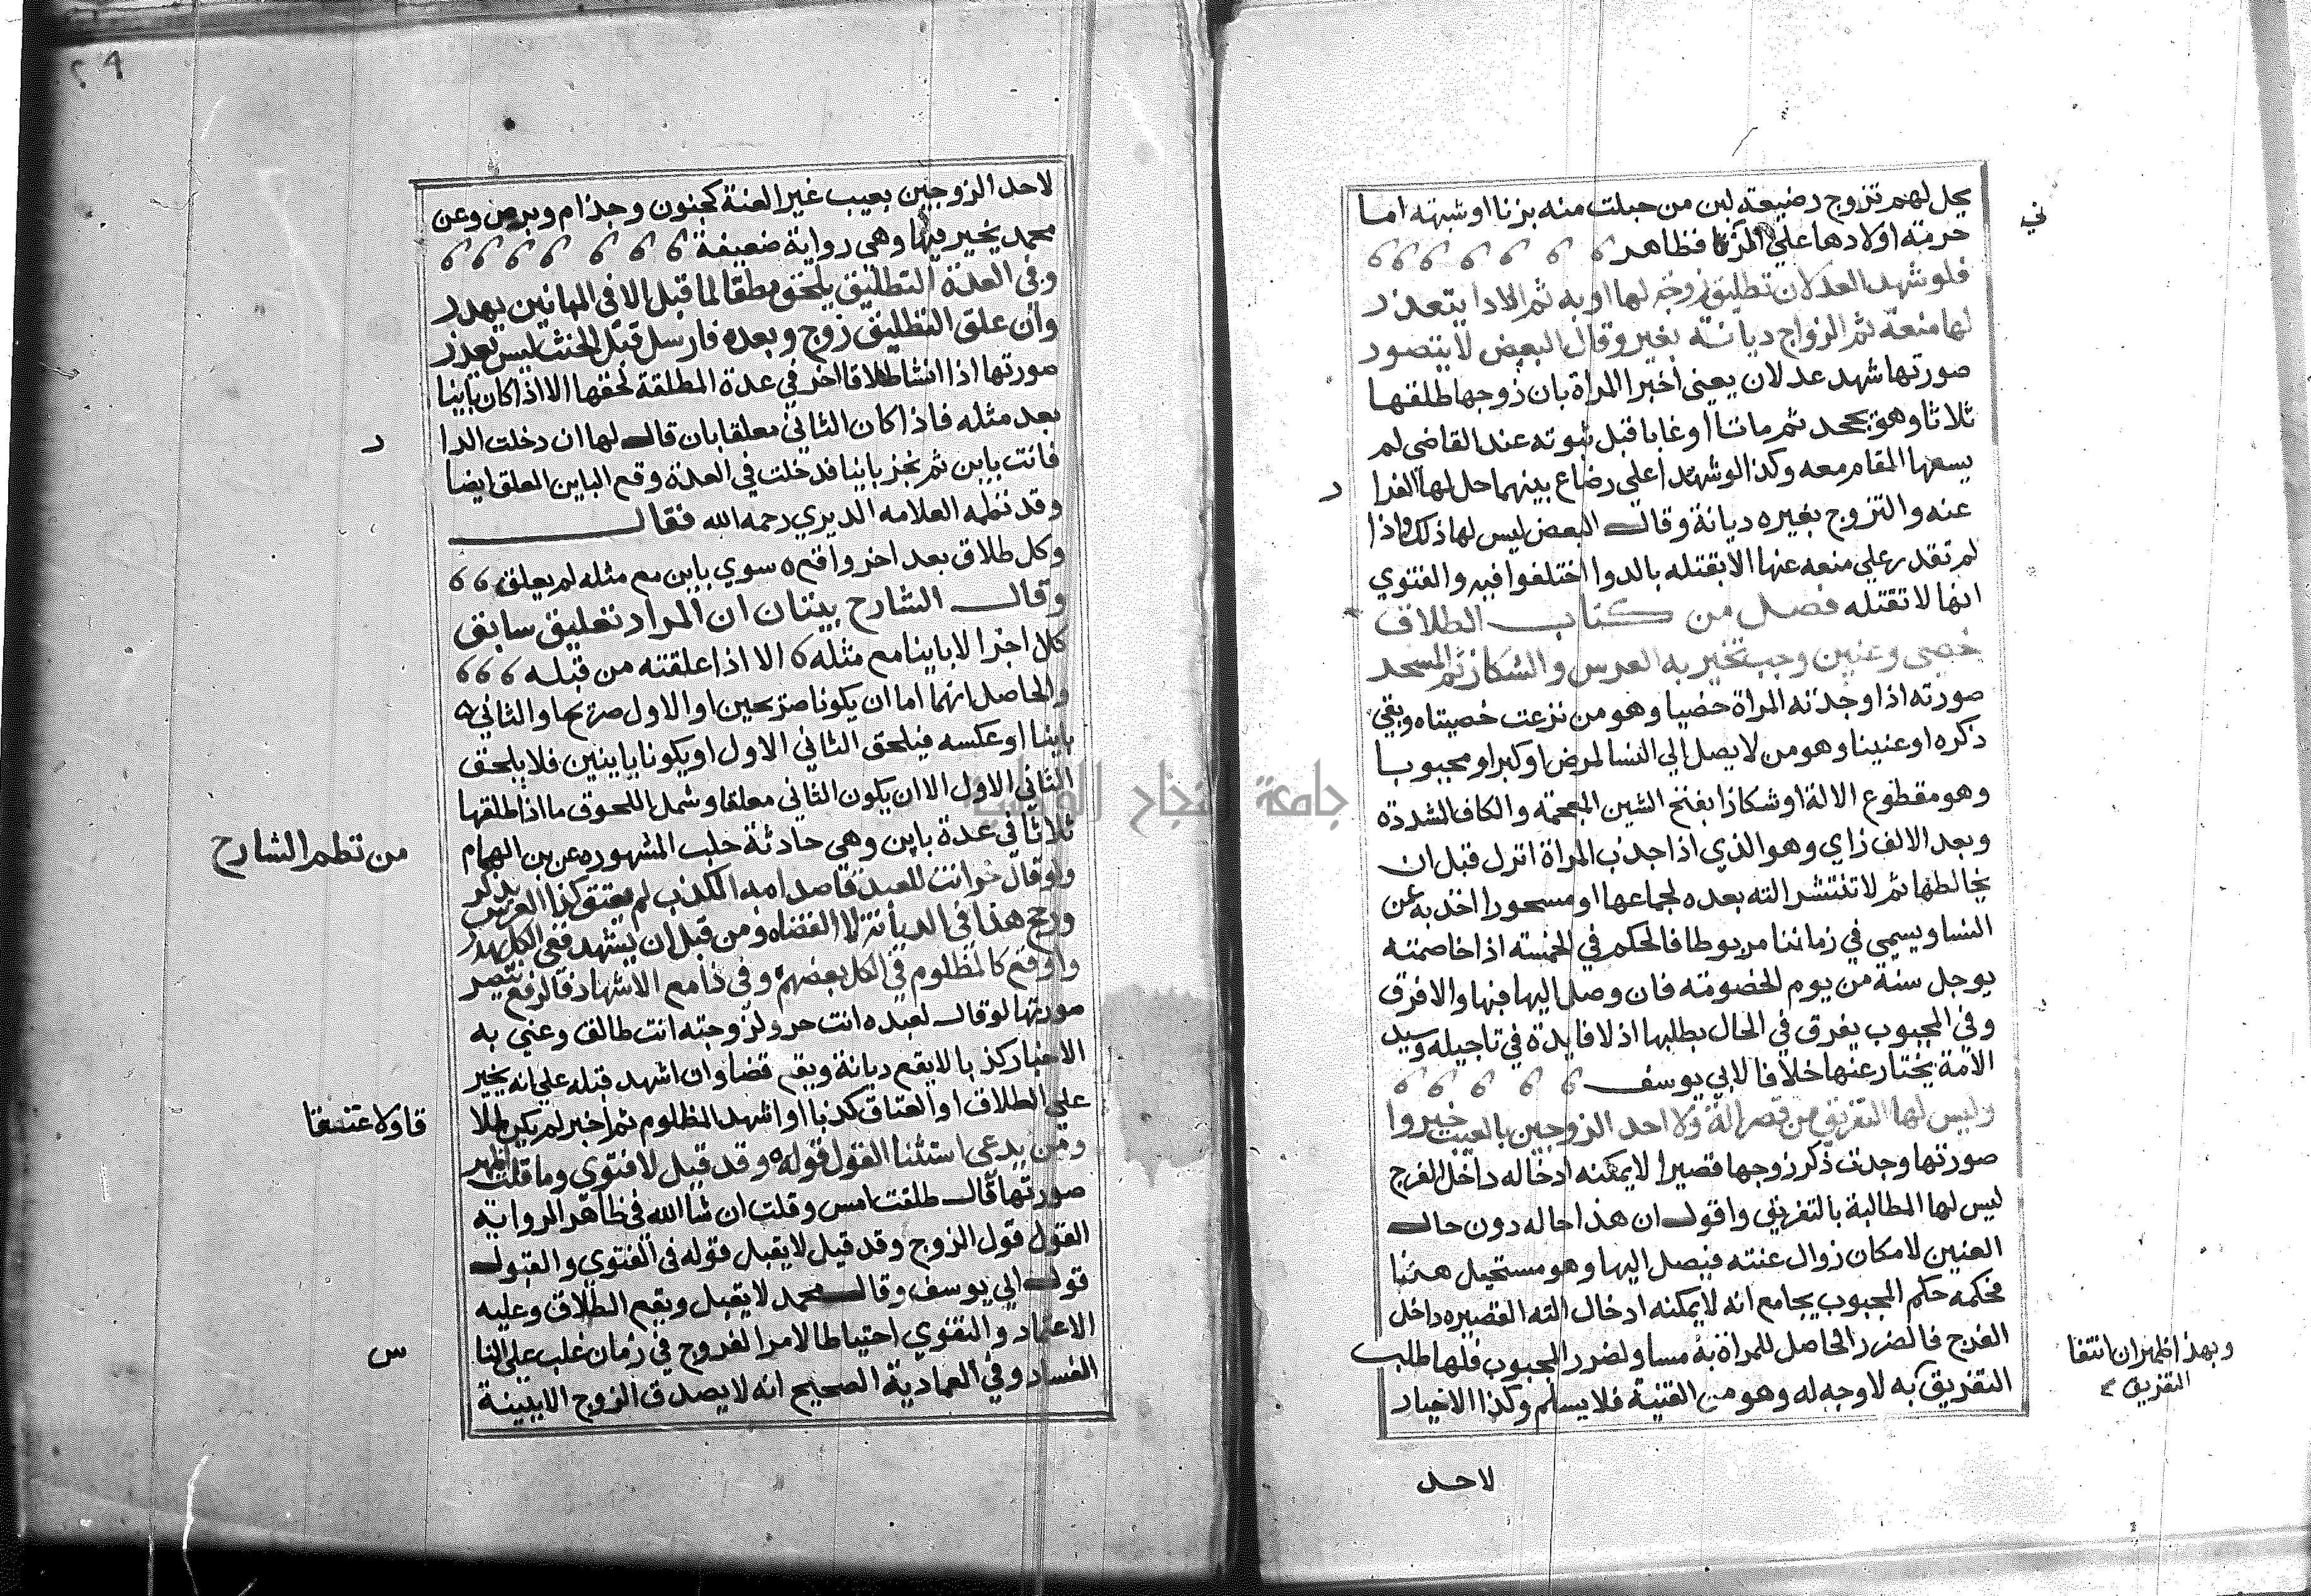 يحل لهم تزوج رضيعة لبن من حبلت منه بزنا او شبهته اما
حرمة اولادها علي الزنا فظاهر
فلو شهد العدلان تطليق زوج لها او به ثم الادا يتعذر
لها منعه ثم الزواج ديانة بغير وقال البعض لا يتصور
صورتها شهد عدلان يعني اخبرا المراة بان زوجها طلقها
ثلاثا وهو يجحد ثم ماتا او غابا قبل ثبوته عند القاضي لم
يسعها المقام معه وكذا لو شهدا علي رضاع بينهما حل لها الفرا
ر
عنه والتزوج بغيره ديانة وقال البعض ليس لها ذلك واذا
لم تقدر علي منعه عنها الا بقتله بالدوا اختلفوا فيه والفتوي
انها لا تقتله فصل من كتاب الطلاق
خصي وعنين وجب تخير به العرس والشكاز ثم المسحر
صورته اذا وجدته المراة خصيا وهو من نزعت خصيتاه وبقي
ذكره او عنينا وهو من لا يصل الي النسا لمرض او كبر او مجبوبا
وهو مقطوع الالة او شكازا بفتح الشين المعجمة والكاف المشددة
وبعد الالف زاي وهو الذي اذا جذب المراة انزل قبل ان
يخالطها ثم لا تنتشر الته بعده لجماعها او مسحورا اخذ به عن
النسا ويسمي في زماننا مربوطا فالحكم في الخمسة اذا خاصمته
يوجل سنة من يوم الخصومة فان وصل اليها فبها والا فرق
وفي المجبوب يفرق في الحال بطلبها اذ لا فايدة في تاجيله وسيد
الامة يختار عنها خلافا لابي يوسف
وليس لها التفريق من قصر الة ولا احد الزوجين بالعيب خيروا
صورتها وجدت ذكر زوجها قصيرا لا يمكنه ادخاله داخل الفرج
ليس لها المطالبة بالتفريق واقول ان هذا حاله دون حال
العنين لامكان زوال عنته فيصل اليها وهو مستحيل هنا
فحكمه حكم المجبوب بجامع انه لا يمكنه ادخال الته القصيره داخل
الفرج فالضرر الحاصل للمراة به مساو لضرر المجبوب فلها طلب
التفريق به لا وجه له وهو من القنية فلا يسلم وكذا لا خيار
وبهذا ظهر ان انتفا
التفريق
لاحد
٢٩
لاحد الزوجين بعيب غير العنة كجنون وجذام وبرص وعن
محمد يخير فيها وهي رواية ضعيفة
وفي العدة التطليق يلحق مطقا لما قبل الا في المباينين يهدر
وان علق التطليق زوج وبعده فارسل قبل الحنث ليس يعذر
صورتها اذا انشا طلاقا اخر في عدة المطلقة لحقها الا اذا كان باينا
بعد مثله فاذا كان الثاني معلقا بان قال لها ان دخلت الدا
ر
فانت باين ثم نجز باينا فدخلت في العدة وقع الباين المعلق ايضا
وقد نظمه العلامه الديري رحمه الله فقال
وكل طلاق بعد اخر واقع سوي باين مع مثله لم يعلق
وقال الشارح بيتان ان المراد تعليق سابق
كلا اجز الا باينا مع مثله الا اذا علقته من قبله
والحاصل انهما اما ان يكونا صريحين او الاول صريحا والثاني
باينا او عكسه فيلحق الثاني الاول او يكونا باينين فلا يلحق
الثاني الاول الا ان يكون الثاني معلقا وشمل اللحوق ما اذا طلقها
ثلاثا في عدة باين وهي حادثة حلب المشهوره عن بن الهمام
من نظم الشارح
ولو قال حر انت للعبد قاصدا به الكذب لم يعتق كذا العرس يذكر
ورجح هذا في الديانة لا القضاء ومن قبل ان يشهد ففي الكل يهدر
واوقع كالمظلوم في الكل بعضهم وفي ذا مع الاشهاد فالرفع ينصر
صورتها لو قال لعبده انت حر ولزوجته انت طالق وعني به
الاخبار كذبا لا يقع ديانة ويقع قضا وان اشهد قبله علي انه يخبر
علي الطلاق او العتاق كذبا او اشهد المظلوم ثم اخبر لم يكن طلا
قا ولا عتقا
ومن يدعي استثنا القول قوله وقد قيل لا فتوي وما قلت اظهر
صورتها قال طلقت امس وقلت ان شا الله في ظاهر الرواية
القول قول الزوج وقد قيل لا يقبل قوله في الفتوي والقبول
قول ابي يوسف وقال محمد لا يقبل ويقع الطلاق وعليه
الاعتماد والفتوي احتياطا لامر الفروج في زمان غلب علي النا
س
الفساد وفي العمادية الصحيح انه لا يصدق الزوج الا ببينة
جامعة النجاح الوطنية